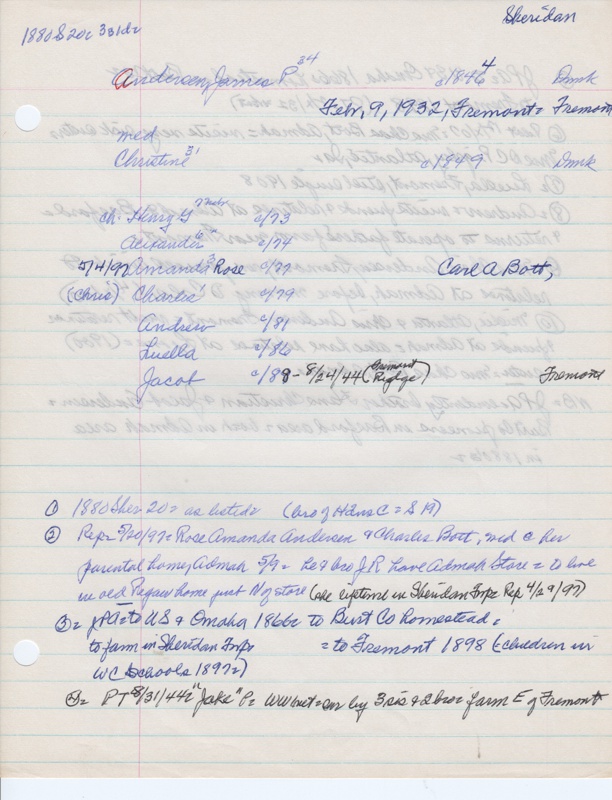 Sheridan
1880 S 20c 331dc
Andersen, James P. 34 c1846 4 Dmk
Febr, 9, 1932, Fremont = Fremont
med
Christine 31 c1849 Dmk
ch. Henry G c/73
Alexander 6 c/74
5/4/97 Amanda 3 Rose c/77 Carl A Bott,
(Chris) Charlie 1 c/79
Andrew c/81
Luella c/86
Jacob c/88 - 8/24/44 (Fremont Ridge) Fremont
① 1880 Sher 20 = as listed = (bro of Hans C = S 19)
② Rep = 5/20/97 = Rose Amanda Andersen & Charles Bott, med c her
parental home, Admah 5/9 = he & bro J.R. have Admah Store = to live
in old Regan home just N of store (one eyetime in Sheridan Twp = Rep 4/29/97)
3 = JPA = to US & Omaha 1866 = to Burt Co homestead =
to farm in Sheridan Twp = to Fremont 1898 (= children in
WC Schools 1897=)
4 = PT 8/31/44 = "Jake" P = WW vet = sur by 3 sis & 2 bro = farm E of Fremont